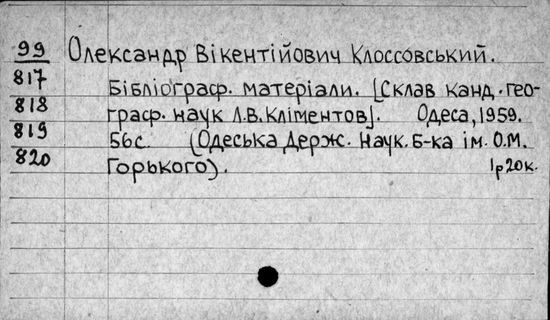 99 Олександр Вікентійович Клоссовський.
817 Бібліограф. матеріали. [Склав канд. гео-
818 граф. наук Л.В. Кліментов]. Одеса, 1959.
819 56с. (Одеська Держ. Наук. Б-ка ім. О.М.
820 Горького). 1р20к.